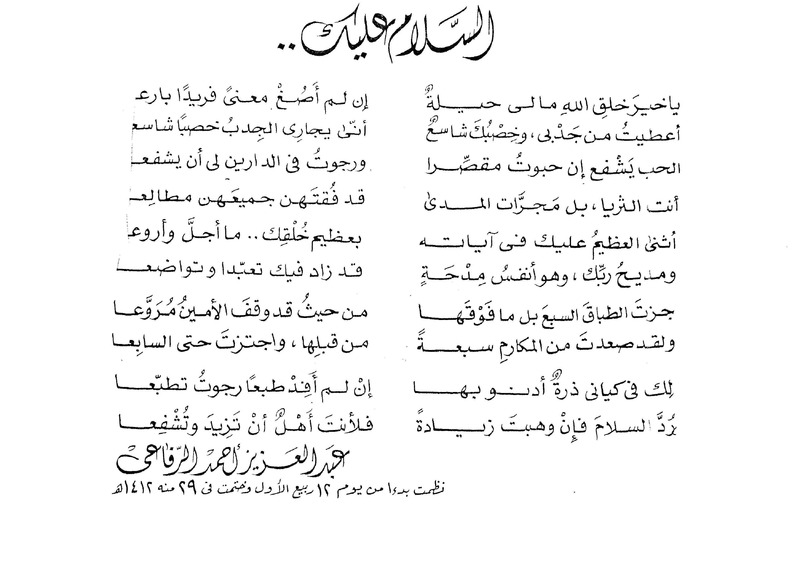 السَّلام عليك ..
ياخيرَ خلقِ اللهِ مالى حيلةٌ إن لم أَصُغْ معنىً فريدًا بارعا
أعطيتُ من جَدْبى، وخِصْبُكَ شاسعٌ أنّى يجارى الجِدبُ خصبًا شاسعا
الحب يَشْفع إن حبوتُ مقصِّرا ورجوتُ فى الدارين لى أن يشفعا
أنت الثريا، بل مَجرَّات المدىٰ قد فُقتَهن جميعَهن مطالِعا
أثنىٰ العظيمُ عليك فى آياته بعظيم خُلْقِك .. ما أجلَّ وأروعا
ومديحُ ربِّك، وهو أنفسُ مِدْحَةٍ قد زاد فيك تعبّدا وتواضعا
جزتَ الطباقَ السبعَ بل ما فَوْقَها من حيثُ قد وقفَ الأمينُ مُرَوَّعا
ولقد صعدتَ من المكارمِ سبعةً من قبلِها، واجتزتَ حتى السابِعا
لِك فى كيانى ذرةٌ أدنو بها إنْ لم أَفِدْ طبعًا رجوتُ تطبّعا
رُدَّ السلامَ فإنْ وهبتَ زيادةً فلأنتَ أَهْلٌ أنْ تَزِيدَ وتُشْفِعا
عبد العزيز أحمد الرّفاعى
نظمت بدءا من يوم ١٢ ربيع الأول وختمت فى ٢٩ منه ١٤١٢ه‍